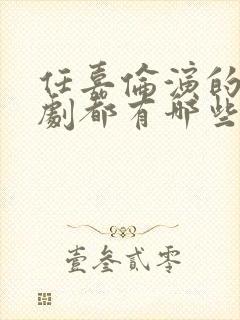 任嘉倫演的
劇都有哪些
壹叁貳零